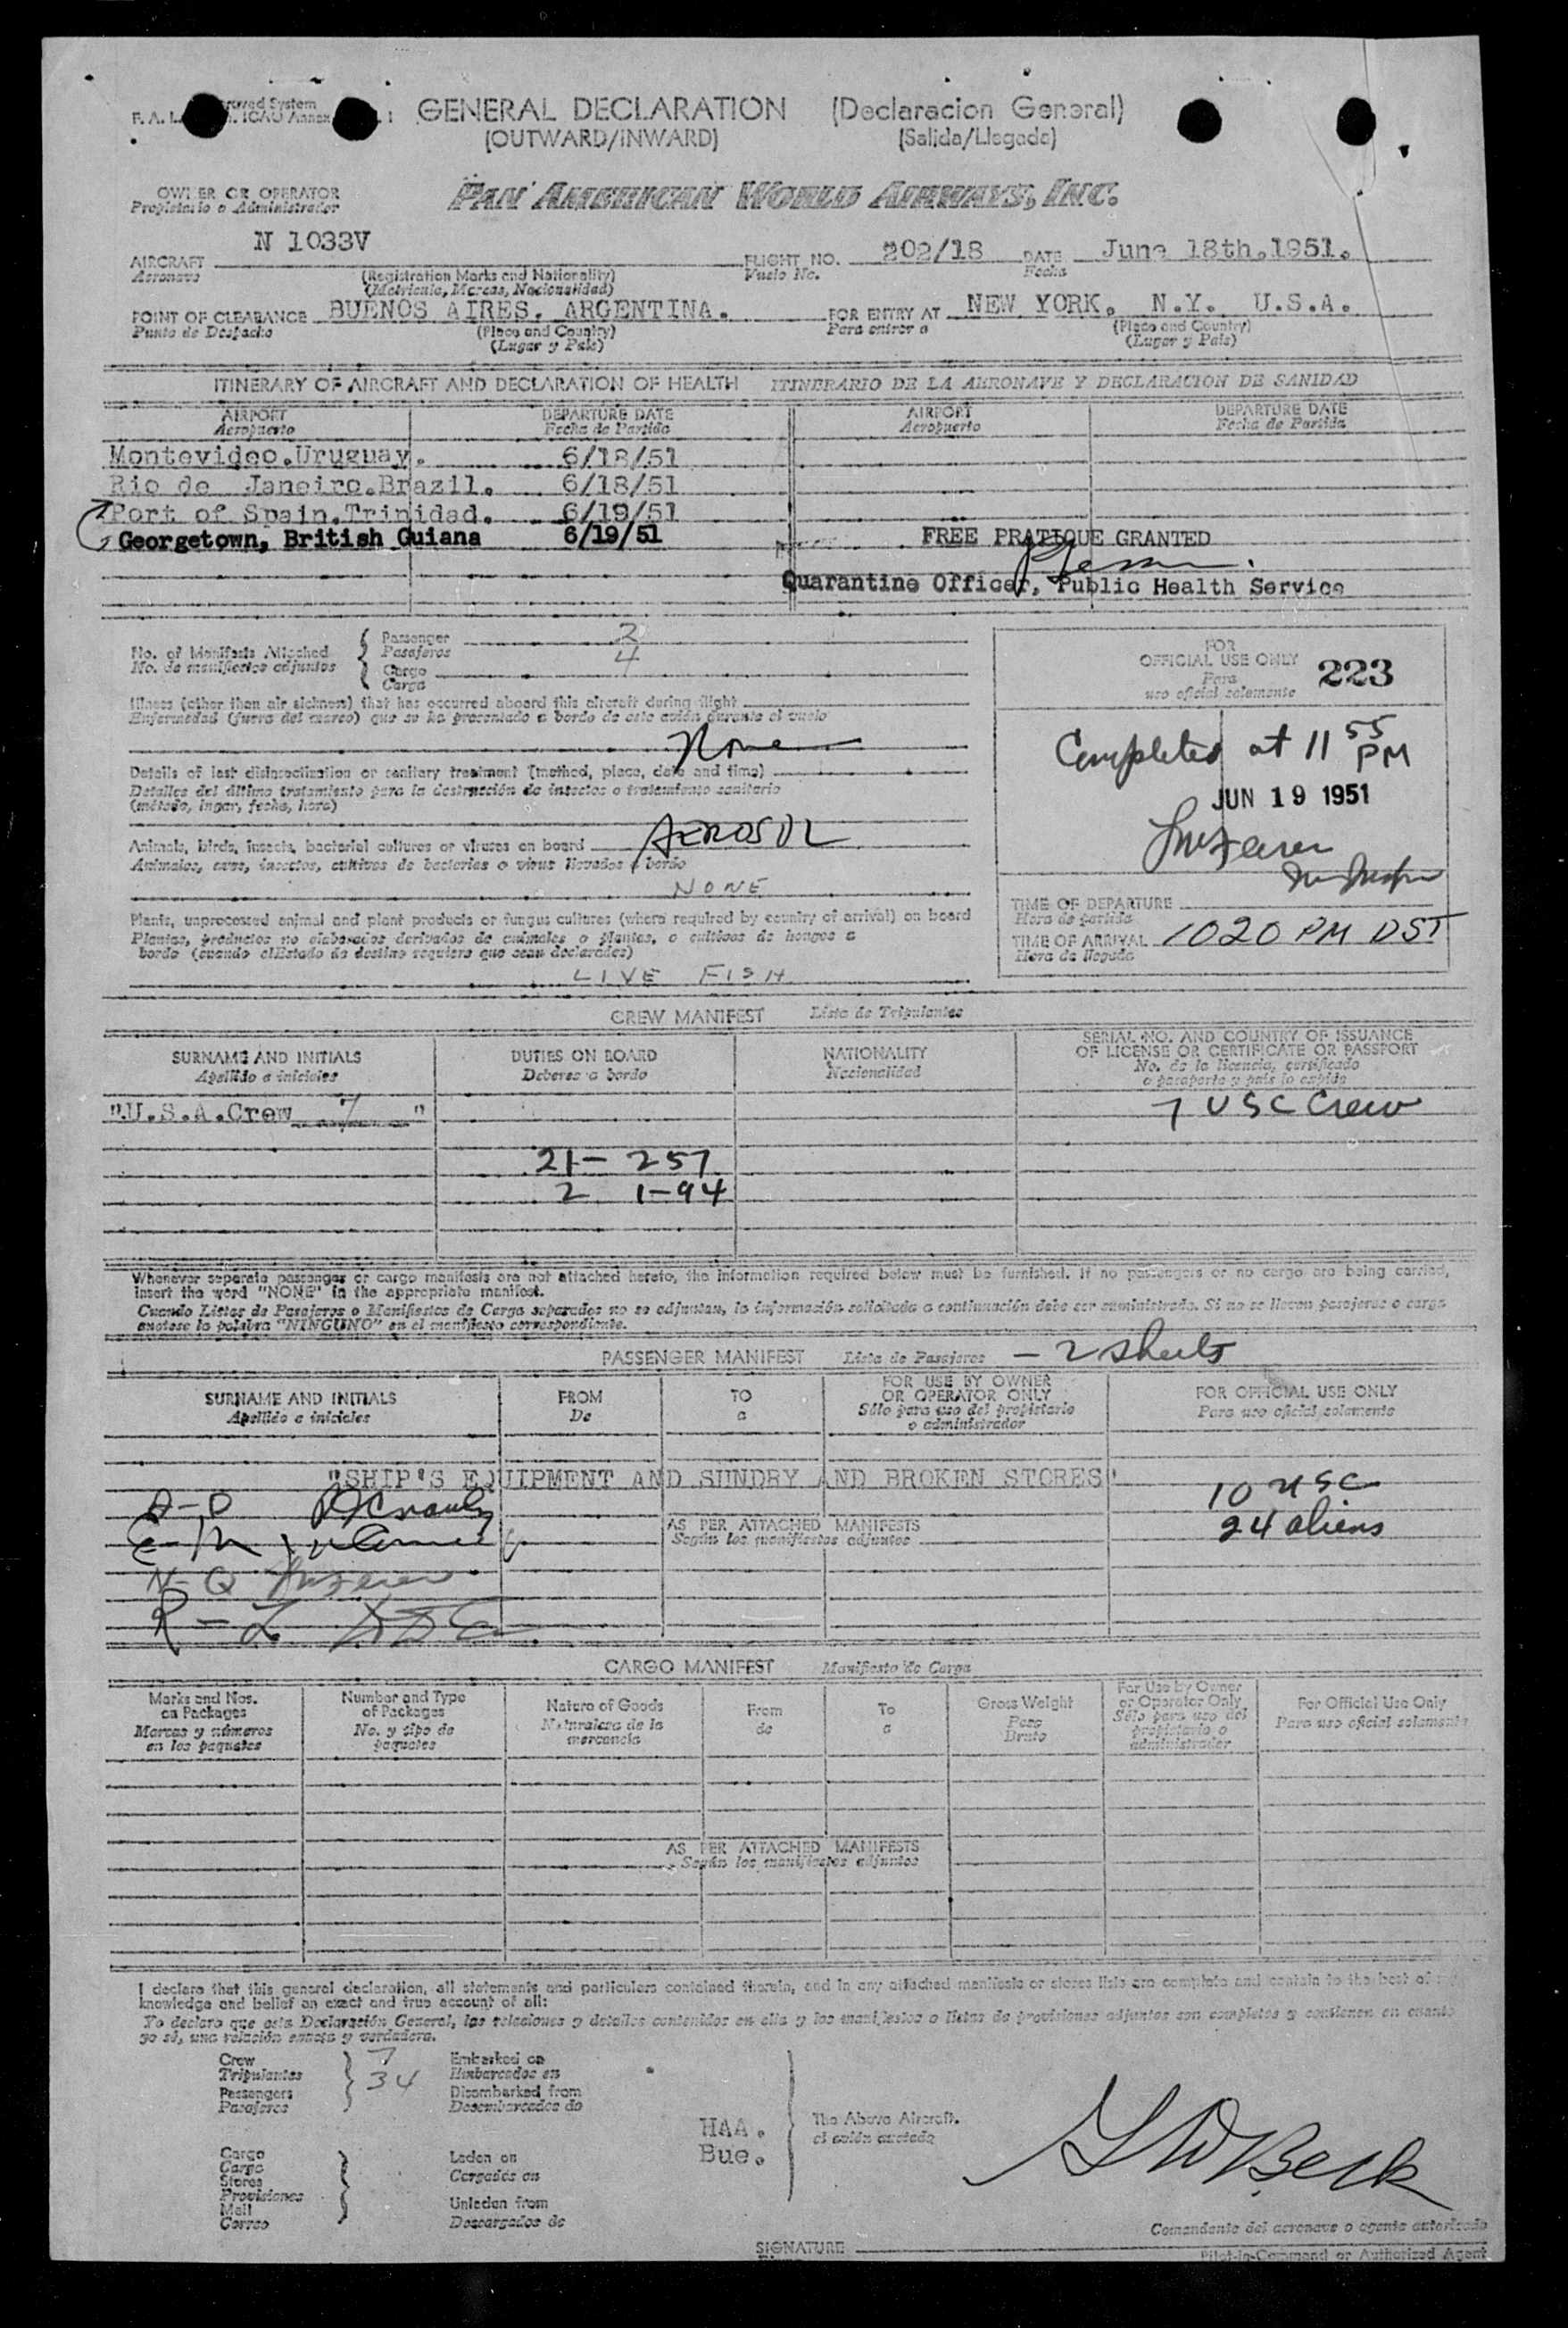 GENERAL DECLARATION (Declaracion General)
(OUTWARD/INWARD) (Salida/Llegada)
OWNER OR OPERATOR
Propietario o Administrador
PAN AMERICAN WORLD AIRWAYS, INC.
N 1033V
AIRCRAFT FLIGHT NO. 202/18 DATE June 18th.1951.
Aeronave Vuelo No. Fecha
(Registration Marks and Nationality)
(Matricula, Marcas, Nacionalidad)
POINT OF CLEARANCE BUENOS AIRES. ARGENTINA. FOR ENTRY AT NEW YORK. N.Y. U.S.A.
Punto de Despacho (Place and Country) Para entrar a (Place and Country)
(Lugar y País) (Lugar y País)
ITINERARY OF AIRCRAFT AND DECLARATION OF HEALTH ITINERARIO DE LA AERONAVE Y DECLARACION DE SANIDAD
AIRPORT DEPARTURE DATE AIRPORT DEPARTURE DATE
Aeropuerto Fecha de Partida Aeropuerto Fecha de Partida
Montevideo.Uruguay. 6/18/51
Rio de Janeiro.Brazil. 6/18/51
Port of Spain.Trinidad. 6/19/51
Georgetown, British Guiana 6/19/51 FREE PRATIQUE GRANTED
Quarantine Officer, Public Health Service
No. of Manifests Attached
No. de manifiestos adjuntos
Passenger 2
Pasajeros
Cargo 4
Carga
FOR OFFICIAL USE ONLY 223
Para uso oficial solamente
Illness (other than air sickness) that has occurred aboard this aircraft during flight
Enfermedad (fuera del mareo) que se ha presentado a bordo de este avión durante el vuelo
None
Completed at 11 55 PM
JUN 19 1951
Details of last disinsectization or sanitary treatment (method, place, date and time)
Detalles del último tratamiento para la destrucción de insectos o tratamiento sanitario
(método, lugar, fecha, hora)
AEROSOL
Animals, birds, insects, bacterial cultures or viruses on board
Animales, aves, insectos, cultivos de bacterias o virus llevados a bordo
NONE
Plants, unprocessed animal and plant products or fungus cultures (where required by country of arrival) on board
Plantas, productos no elaborados derivados de animales o plantas, o cultivos de hongos a
bordo (cuando el Estado de destino requiera que sean declarados)
LIVE FISH
TIME OF DEPARTURE
Hora de partida
TIME OF ARRIVAL 1020 PM DST
Hora de llegada
CREW MANIFEST Lista de Tripulantes
SURNAME AND INITIALS DUTIES ON BOARD NATIONALITY SERIAL NO. AND COUNTRY OF ISSUANCE
OF LICENSE OR CERTIFICATE OR PASSPORT
Apellido e iniciales Deberes a bordo Nacionalidad No. de la licencia, certificado
o pasaporte y país lo expide
"U.S.A.Crew 7 " 7 USC Crew
21- 257
2 1-94
Whenever separate passenger or cargo manifests are not attached hereto, the information required below must be furnished. If no passengers or no cargo are being carried,
insert the word "NONE" in the appropriate manifest.
Cuando Listas de Pasajeros o Manifiestos de Carga separados no se adjuntan, la información solicitada a continuación debe ser suministrada. Si no se llevan pasajeros o carga
anotese la palabra "NINGUNO" en el manifiesto correspondiente.
PASSENGER MANIFEST Lista de Pasajeros - 2 sheets
SURNAME AND INITIALS FROM TO FOR USE BY OWNER OR OPERATOR ONLY FOR OFFICIAL USE ONLY
Apellido e iniciales De a Sólo para uso del propietario o administrador Para uso oficial solamente
"SHIP'S EQUIPMENT AND SUNDRY AND BROKEN STORES"
10 USC
24 aliens
A-D
E-M
N-Q
R-Z
AS PER ATTACHED MANIFESTS
Según los manifiestos adjuntos
CARGO MANIFEST Manifiesto de Carga
Marks and Nos. on Packages Number and Type of Packages Nature of Goods From To Gross Weight For Use by Owner or Operator Only For Official Use Only
Marcas y números en los paquetes No. y tipo de paquetes Naturaleza de la mercancia de a Peso Bruto Sólo para uso del propietario o administrador Para uso oficial solamente
AS PER ATTACHED MANIFESTS
Según los manifiestos adjuntos
I declare that this general declaration, all statements and particulars contained therein, and in any attached manifests or stores lists are complete and contain to the best of my
knowledge and belief an exact and true account of all:
Yo declaro que esta Declaración General, las relaciones y detalles contenidos en ella y los manifiestos o listas de provisiones adjuntos son completos y contienen en cuanto
yo sé, una relación exacta y verdadera.
Crew 7 Embarked on
Tripulantes Embarcados en
Passengers 34 Disembarked from
Pasajeros Desembarcados de
HAA. The Above Aircraft.
Bue. el avión anotado
Cargo Laden on
Carga Cargados en
Stores
Provisiones
Mail Unladen from
Correo Descargados de
G W Beck
Comandante del aeronave o agente autorizado
SIGNATURE Pilot-in-Command or Authorized Agent